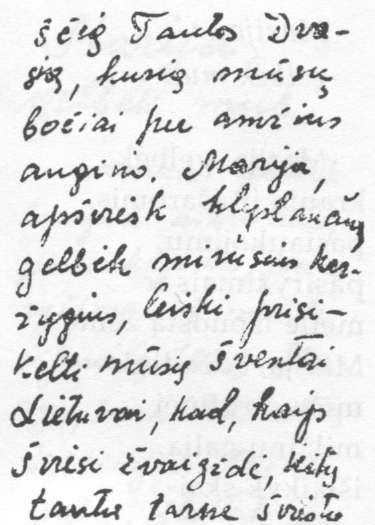 ščią Tautos Dva-
šią, kurią mūsų
bočiai per amžius
augino. Marija,
apšviesk klystančius,
gelbėk mirusius ker-
žygius, leiski prisi-
kelti mūsų šventai
Lietuvai, kad, kaip
šviesi žvaigždė, kitų
tautų tarpe šviestų